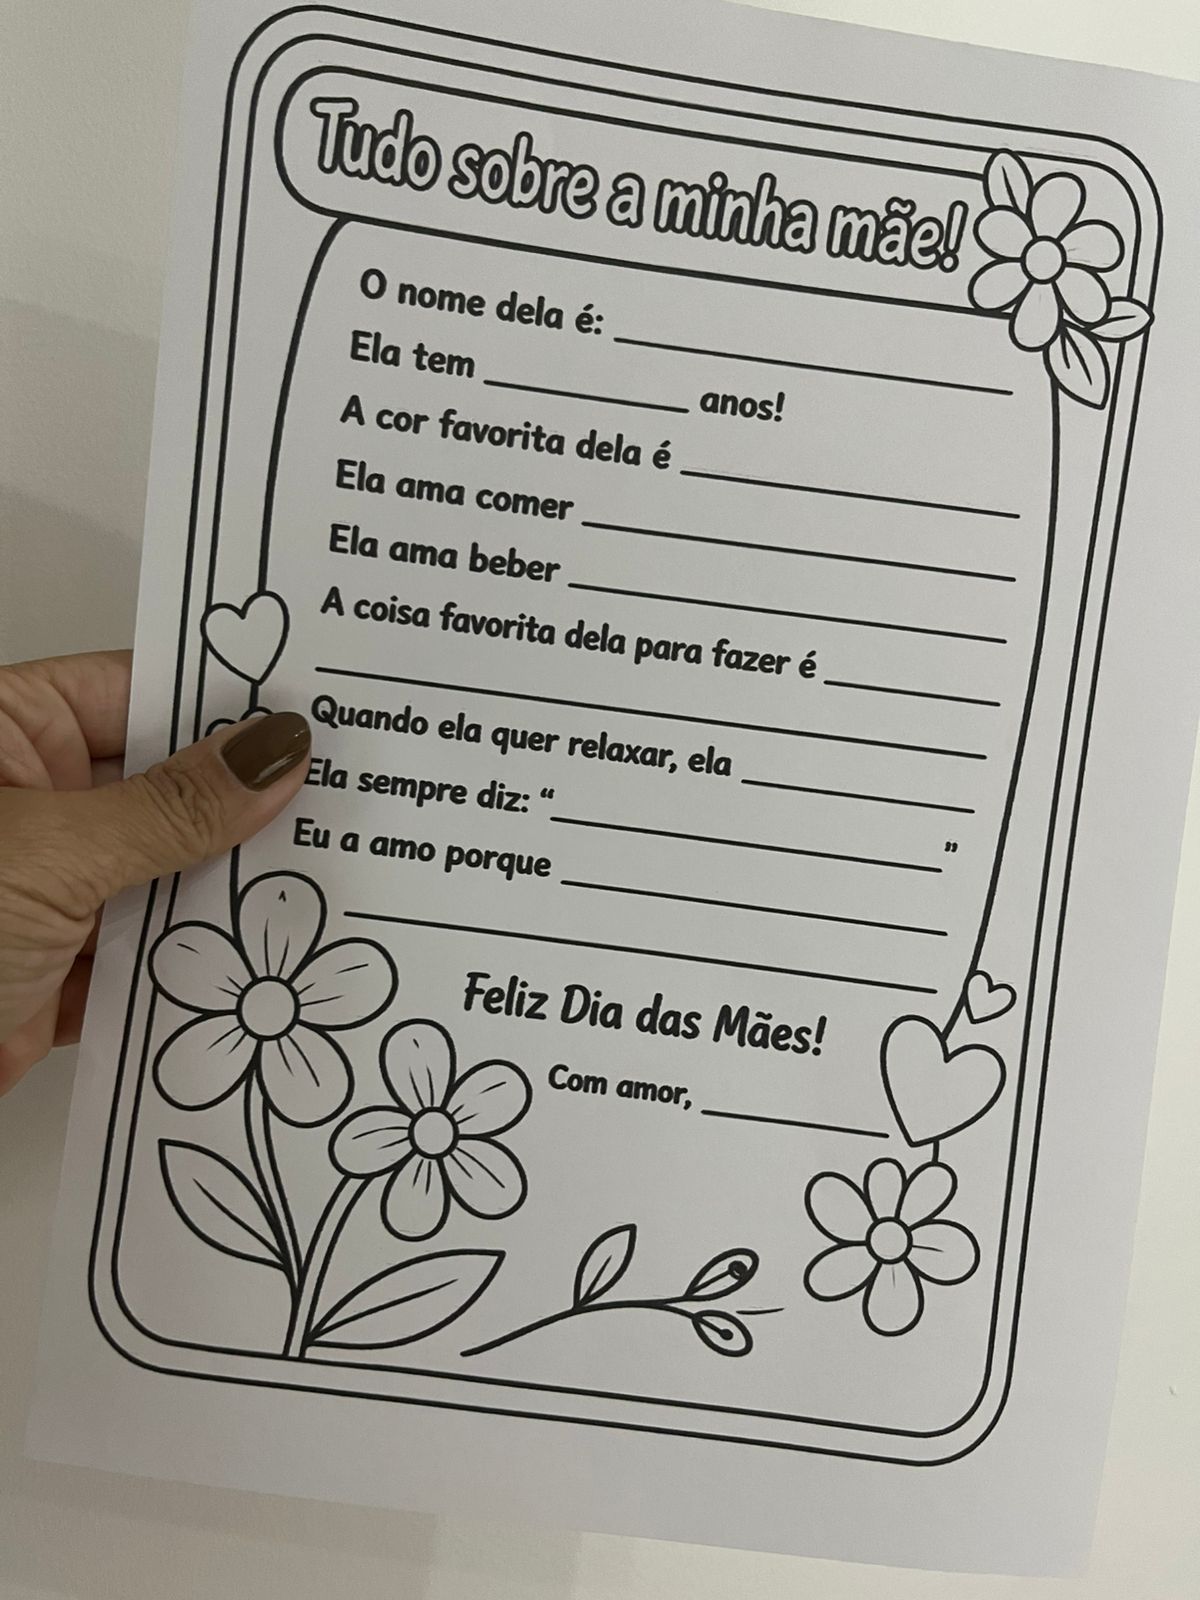 Tudo sobre a minha mãe!
O nome dela é: ____________
Ela tem ________ anos!
A cor favorita dela é ____________
Ela ama comer ____________
Ela ama beber ____________
A coisa favorita dela para fazer é ________
____________________
Quando ela quer relaxar, ela ________
Ela sempre diz: “____________”
Eu a amo porque ____________
____________________
Feliz Dia das Mães!
Com amor, ________